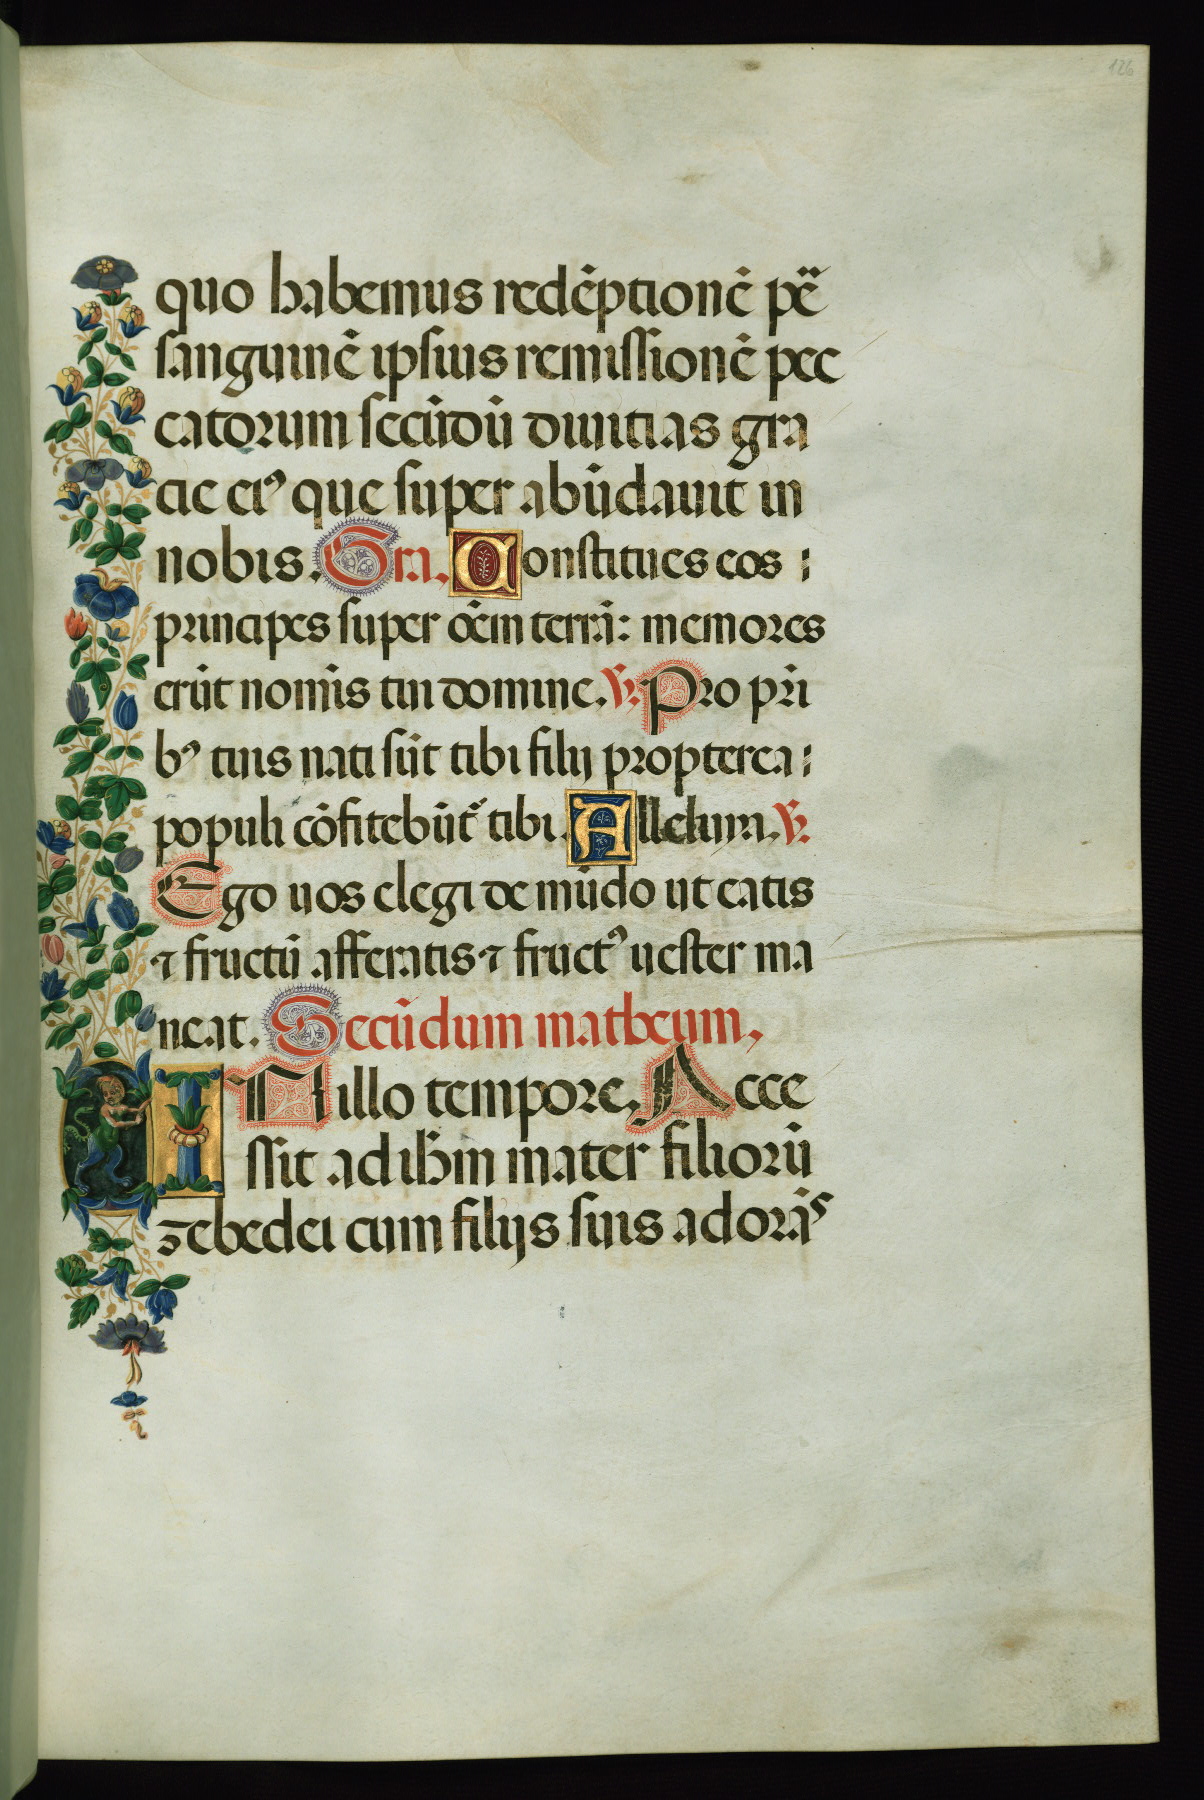 126
quo habemus redēptionē pē
sanguinē ipsius remissionē pec
catorum secūdū diuitias gra
cie eiꝰ que super abūdauit in
nobis. Gra. Constitues eos :
principes super oēm terrā: memores
erūt nomīs tui domine. ℣. Pro pr̄i
bꝰ tuis nati sūt tibi filij propterea :
populi cōfitebūt᷑ tibi. Alleluya. ℣.
Ego uos elegi de mūdo ut eatis
⁊ fructū afferatis ⁊ fructꝰ uester ma
neat. Secūdum matheum,
IN illo tempore, Acce
ssit ad ih̄m mater filiorū
zebedei cum filijs suis adorās